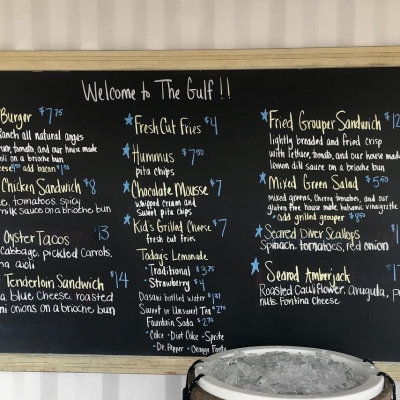 Welcome to The Gulf!!
Burger $7.75
Ranch all natural angus
tomato, and our house made
oli on a brioche bun
add bacon $1.50
Chicken Sandwich $8
e, tomatoes, spicy
milk sauce on a brioche bun
Oyster Tacos $13
Cabbage, pickled Carrots,
aioli
Tenderloin Sandwich $14
a, blue cheese, roasted
ni onions on a brioche bun
Fresh Cut Fries $4
Hummus $7.50
pita chips
Chocolate Mousse $7
whipped cream and
sweet pita chips
Kid's Grilled Cheese $7
fresh cut fries
Today's Lemonade
- Traditional $3.75
- Strawberry $4
Dasani bottled water
Sweet or Unsweet Tea $2.75
Fountain Soda $2.75
- Coke - Diet Coke - Sprite
- Dr. Pepper - Orange Fanta
Fried Grouper Sandwich $12
lightly breaded and fried crisp
with lettuce, tomato, and our house made
lemon dill sauce on a brioche bun
Mixed Green Salad $5.50
mixed greens, cherry tomatoes, and our
gluten free house made balsamic vinaigrette
add grilled grouper $8.50
Seared Diver Scallops $1
Spinach, tomatoes, red onion
Seared Amberjack $1
Roasted Cauliflower, arugula, p
nuts, Fontina Cheese